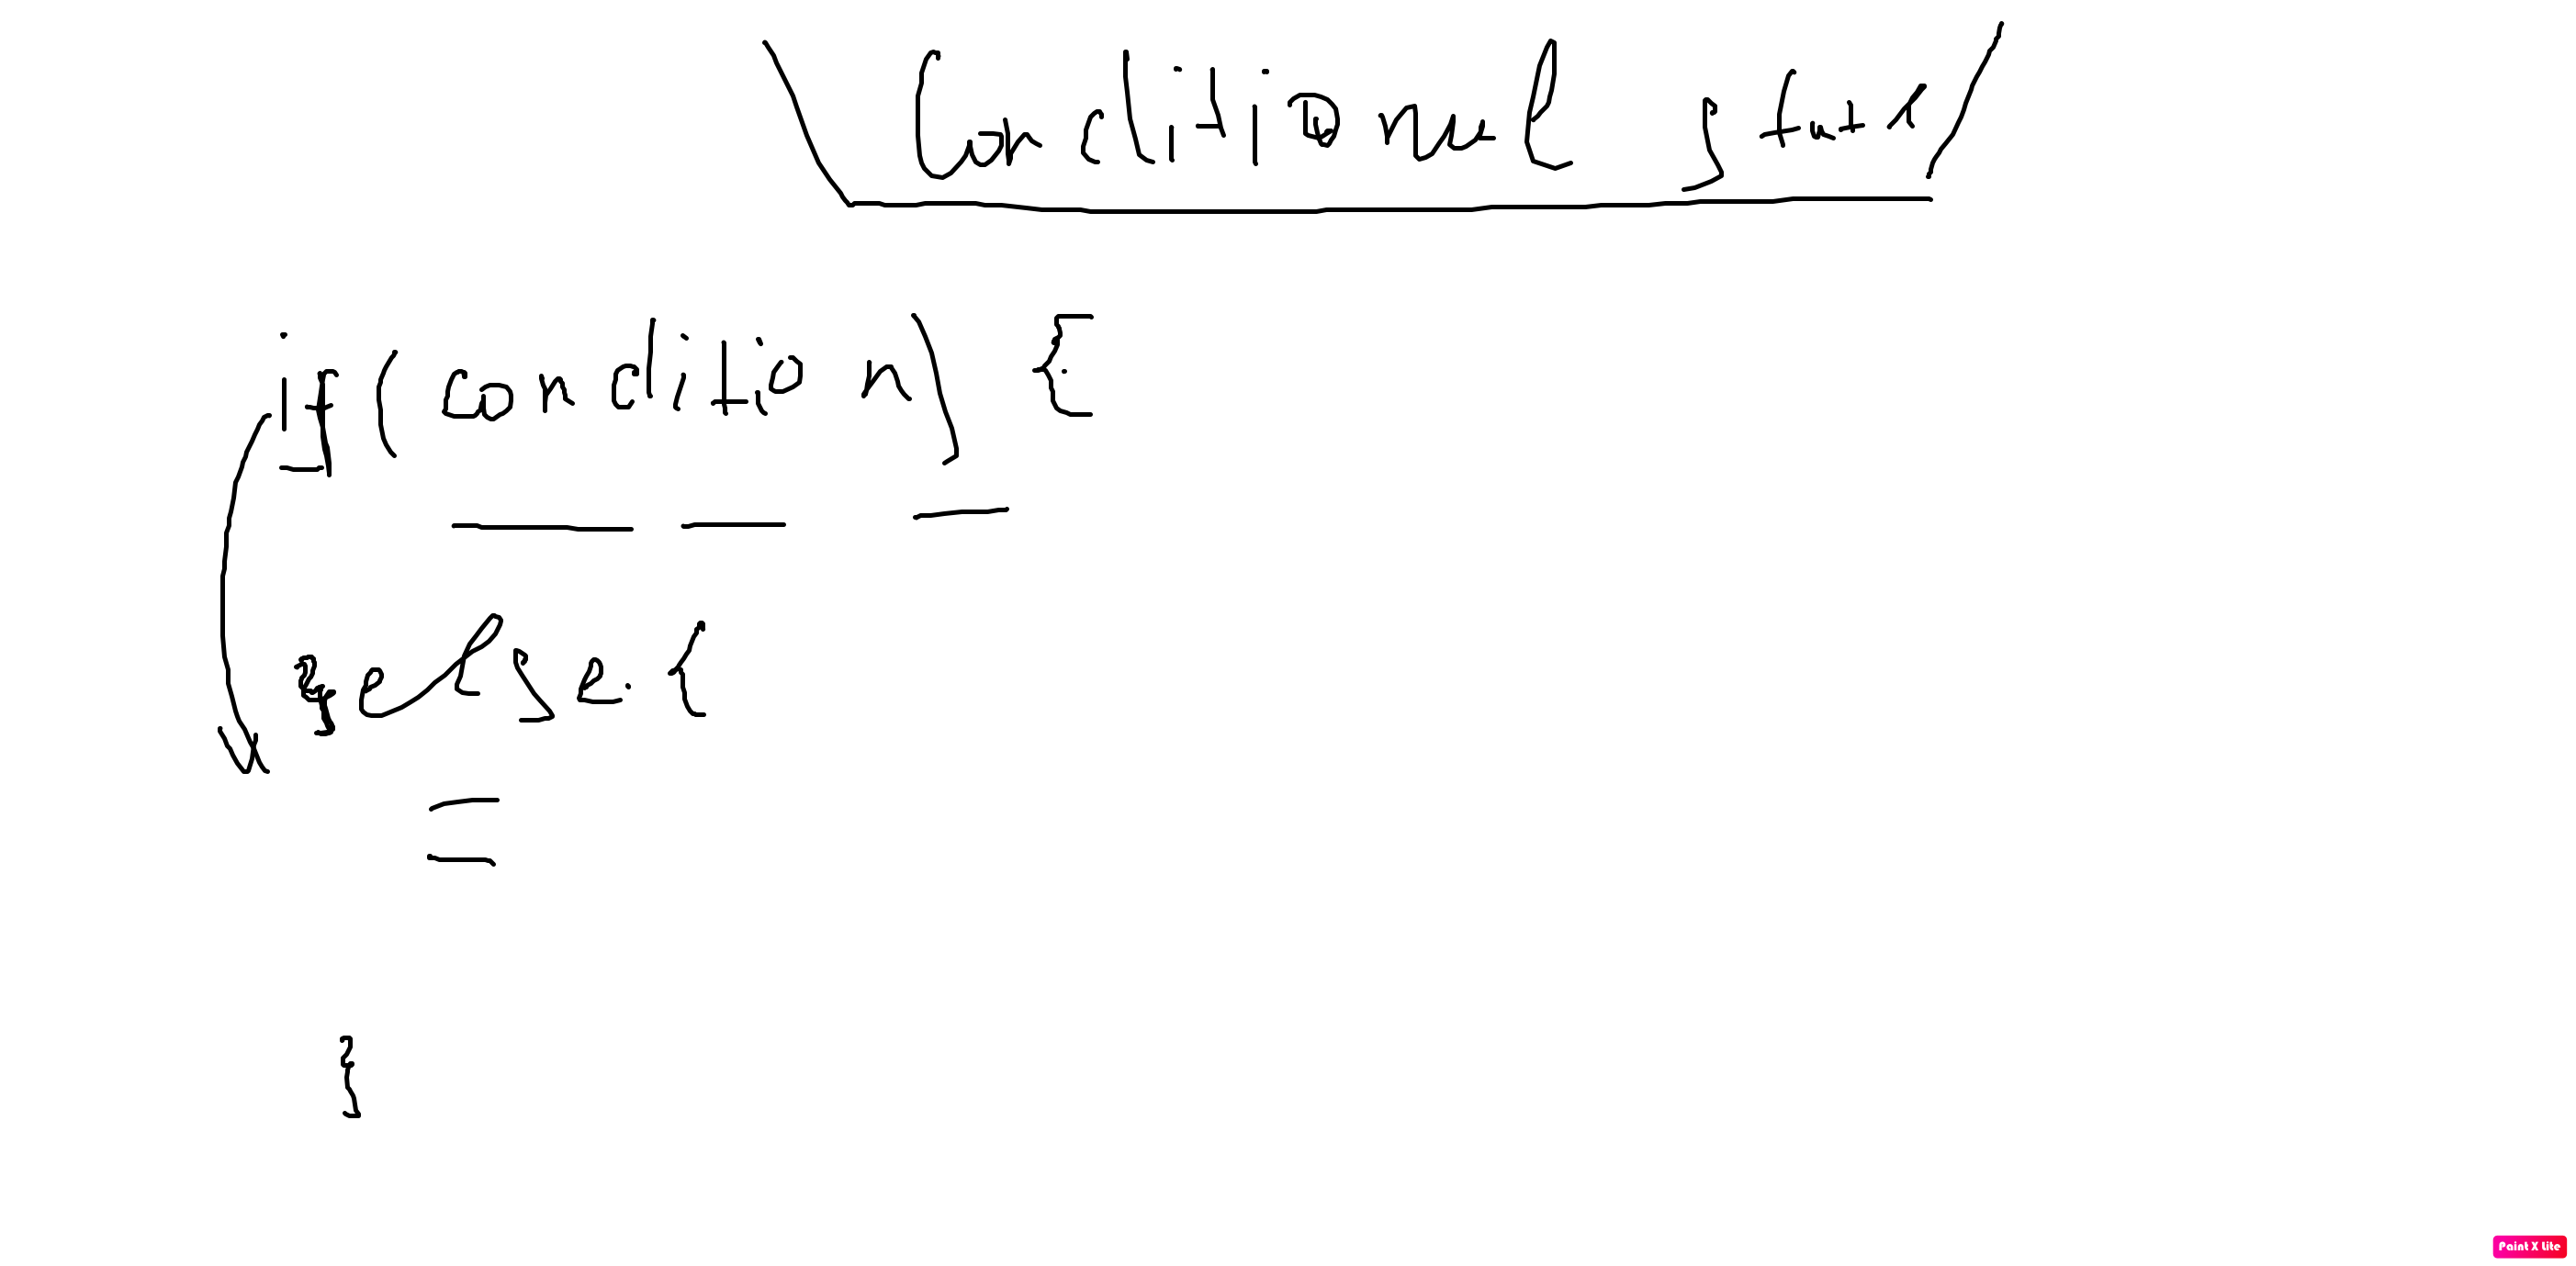 Conditional state
if(condition) {
}else{
}
Paint X Lite